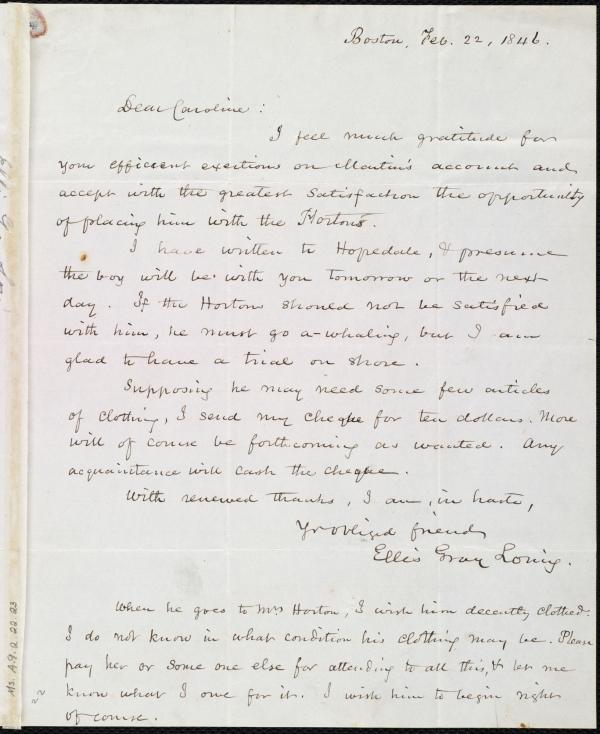 Boston, Feb. 22, 1846.
Dear Caroline:
I feel much gratitude for
your efficient exertions on Martin's account and
accept with the greatest satisfaction the opportunity
of placing him with the Hortons.
I have written to Hopedale, & presume
the boy will be with you tomorrow or the next
day. If the Hortons should not be satisfied
with him, he must go a-whaling, but I am
glad to have a trial on shore.
Supposing he may need some few articles
of clothing, I send my cheque for ten dollars. More
will of course be forthcoming as wanted. Any
acquaintance will cash the cheque.
With renewed thanks, I am, in haste,
Yr obliged friend,
Ellis Gray Loring.
When he goes to Mrs Horton, I wish him decently clothed.
I do not know in what condition his clothing may be. Please
pay her or some one else for attending to all this, & let me
know what I owe for it. I wish him to begin right
of course.
Ms. A.9.2.22.23